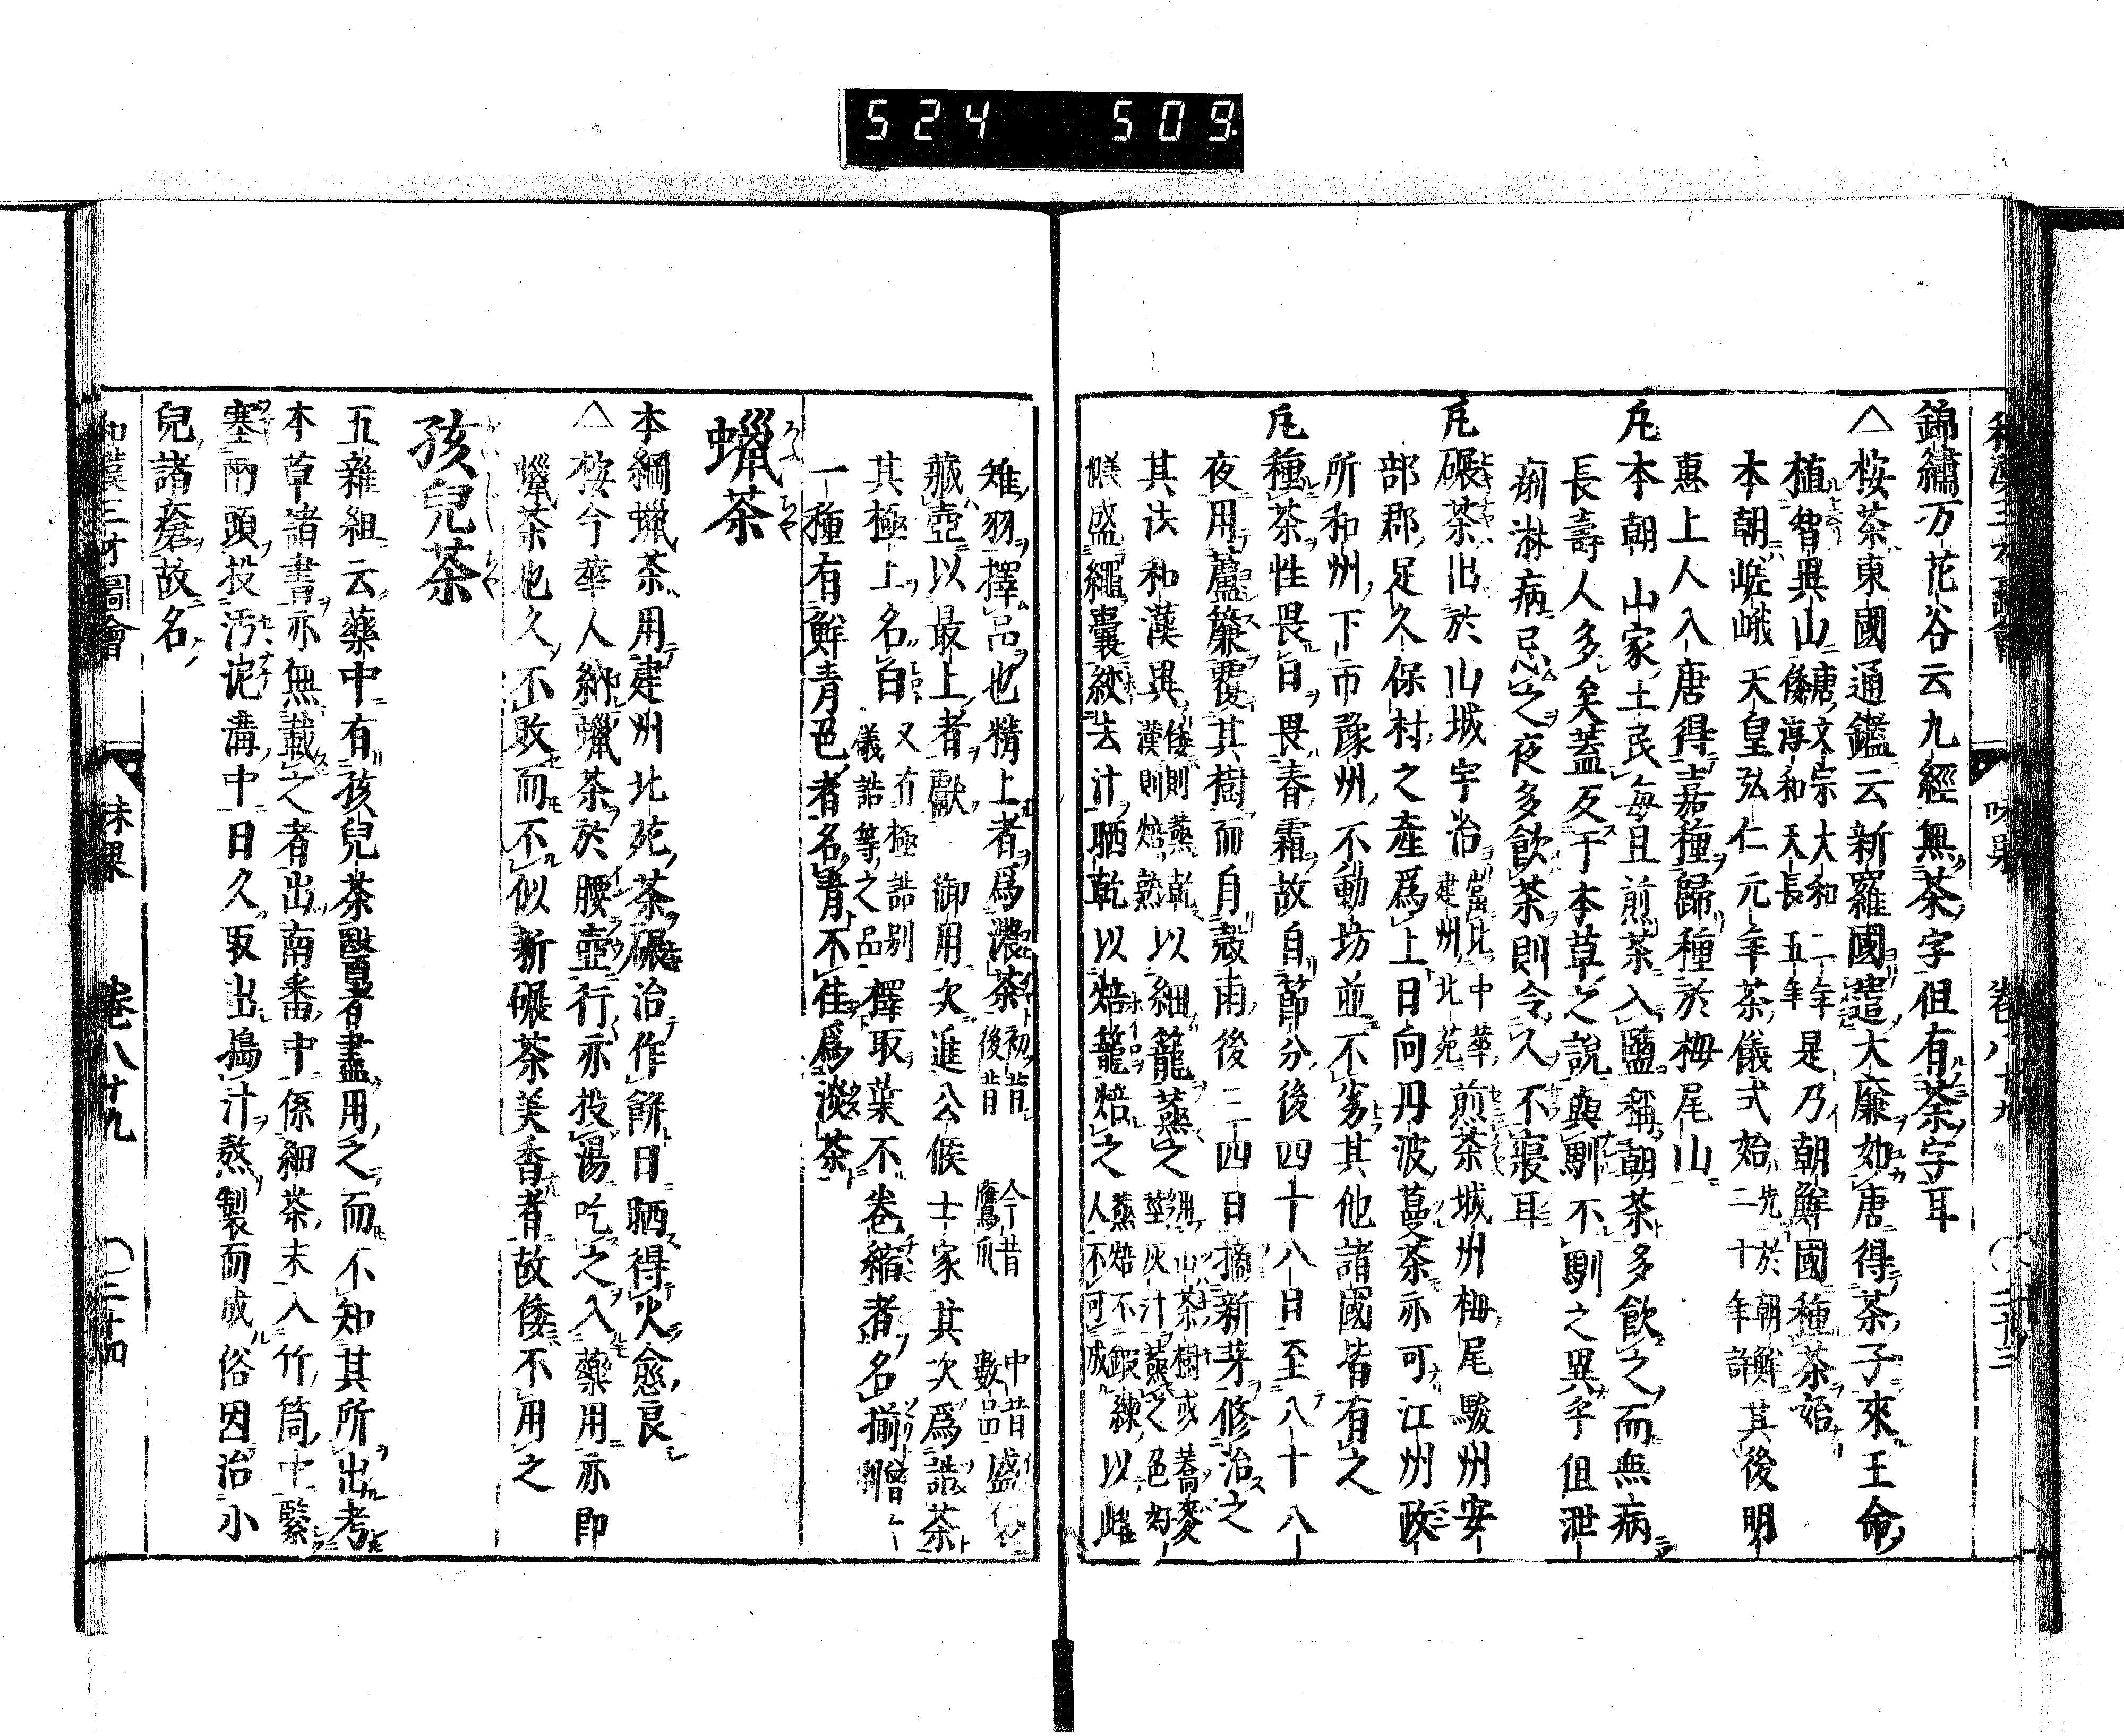 524 509
錦繡万花谷云九經無茶字但有荼字耳
△桉茶東國通鑑云新羅國遣大廉如唐得茶子來王命
植智異山 唐文宗大和二年 倭淳和天長五年 是乃朝鮮國種茶始
本朝嵯峨 天皇弘仁元年茶儀式始 先於朝鮮 二十年許 其後明
惠上人入唐得嘉種歸種於栂尾山
凡本朝 山家土民每旦煎茶入鹽稱朝茶多飮之而無病
長壽人多矣蓋反于本草之說與馴不馴之異乎但泄
痢淋病忌之夜多飮茶則令人不寢耳
凡碾茶出於山城宇治 當比中華 建州北苑 煎茶城州栂尾駿州安
部郡足久保村之產爲上日向丹波蔓茶亦可江州政
所和州下市豫州不動坊並不劣其他諸國皆有之
凡種茶性畏日畏春霜故自節分後四十八日至八十八
夜用蘆簾覆其樹而自穀雨後三四日摘新芽修治之
其法和漢異 倭則蒸乾 漢則焙熟 以細籠蒸之 用山茶樹或蕎麥 莖灰汁蒸之色好
幞盛繩囊絞去汁晒乾以焙籠焙之 蒸焙不鍛練 人不可成 以𨿽
雉羽擇品也精上者爲濃茶 初昔 後昔 今昔 鷹爪 中昔 數品 盛
藏壺以最上者獻 御用次進公候士家其次爲詰茶
其極上名白 又有極詰別 儀詰等之品 擇取葉不卷縮者名揃
一種有鮮青色者名青不佳爲淡茶
蠟茶
本綱蠟茶用建州北苑茶碾治作餅日晒得火愈良
△桉今華人納蠟茶於腰壺行亦投湯吃之入藥用亦即
蠟茶也久不敗而不似新碾茶美香者故倭不用之
孩兒茶
五雜組云藥中有孩兒茶醫者盡用之而不知其所出考
本草諸書亦無載之者出南番中係細茶末入竹筒中緊
塞兩頭投汚泥溝中日久取出搗汁熬製而成俗因治小
兒諸瘡故名
和漢三才圖會 味果 卷八十九 〇二十四